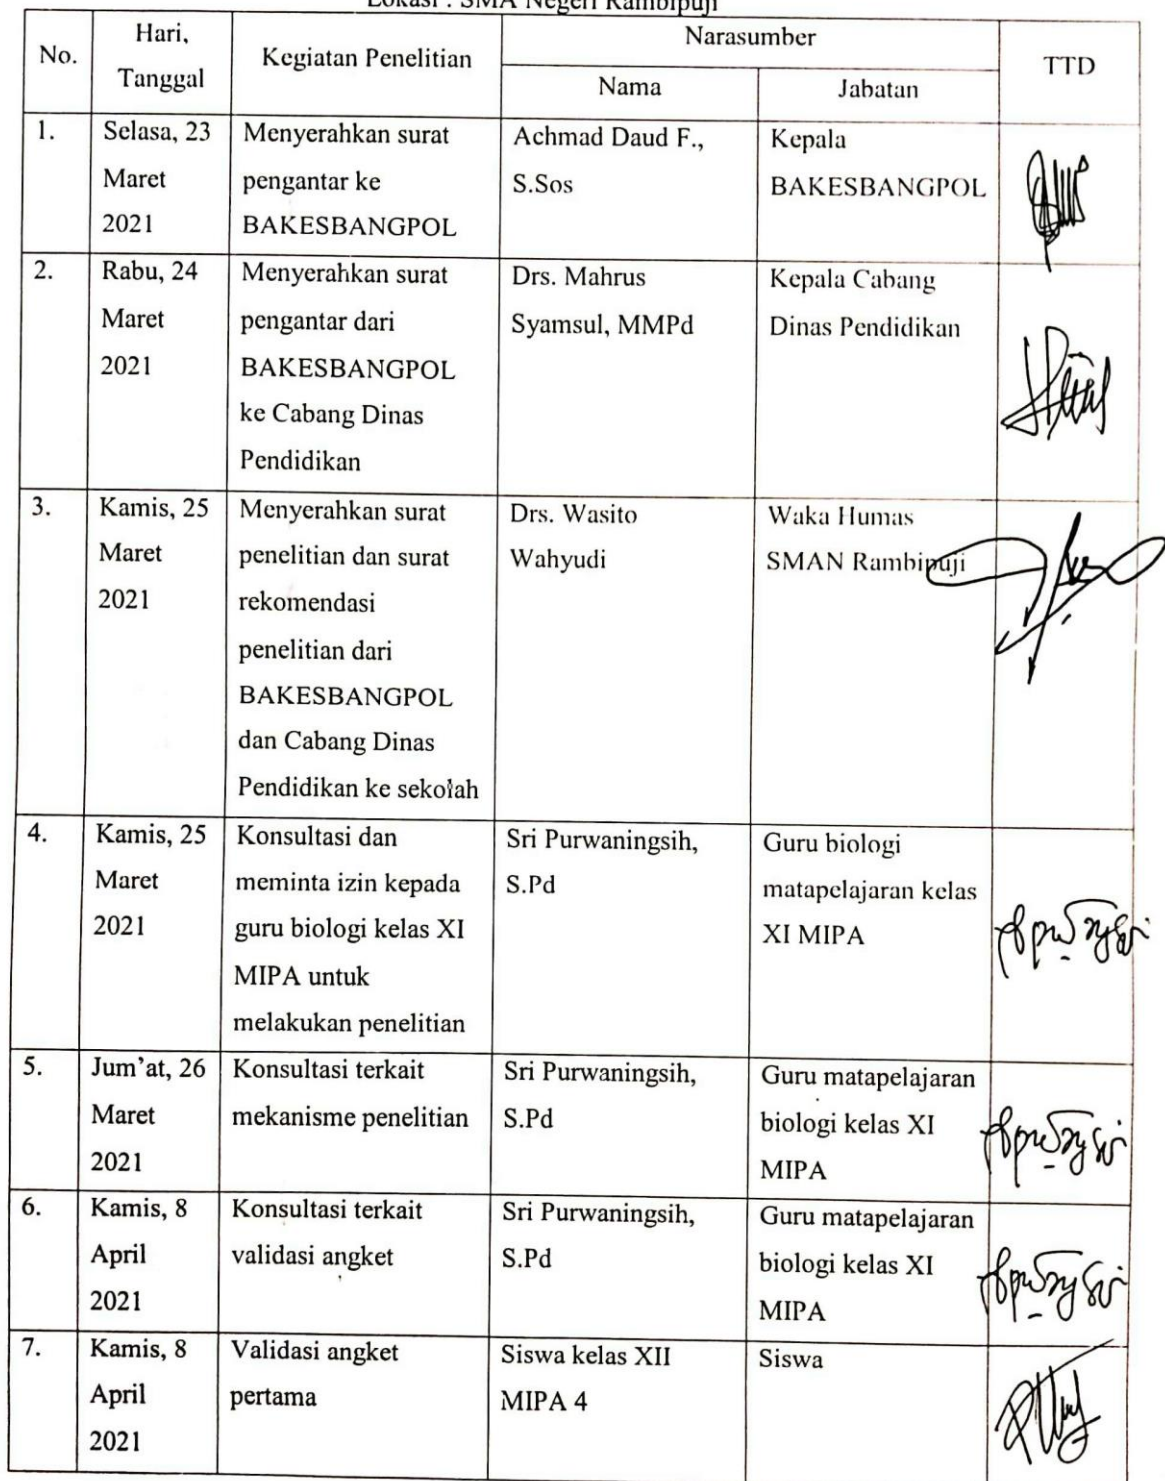 Lokasi : SMA Negeri Rambipuji
No.
Hari,
Tanggal
Kegiatan Penelitian
Narasumber
Nama
Jabatan
TTD
1.
Selasa, 23
Maret
2021
Menyerahkan surat
pengantar ke
BAKESBANGPOL
Achmad Daud F.,
S.Sos
Kepala
BAKESBANGPOL
2.
Rabu, 24
Maret
2021
Menyerahkan surat
pengantar dari
BAKESBANGPOL
ke Cabang Dinas
Pendidikan
Drs. Mahrus
Syamsul, MMPd
Kepala Cabang
Dinas Pendidikan
3.
Kamis, 25
Maret
2021
Menyerahkan surat
penelitian dan surat
rekomendasi
penelitian dari
BAKESBANGPOL
dan Cabang Dinas
Pendidikan ke sekolah
Drs. Wasito
Wahyudi
Waka Humas
SMAN Rambipuji
4.
Kamis, 25
Maret
2021
Konsultasi dan
meminta izin kepada
guru biologi kelas XI
MIPA untuk
melakukan penelitian
Sri Purwaningsih,
S.Pd
Guru biologi
matapelajaran kelas
XI MIPA
5.
Jum'at, 26
Maret
2021
Konsultasi terkait
mekanisme penelitian
Sri Purwaningsih,
S.Pd
Guru matapelajaran
biologi kelas XI
MIPA
6.
Kamis, 8
April
2021
Konsultasi terkait
validasi angket
Sri Purwaningsih,
S.Pd
Guru matapelajaran
biologi kelas XI
MIPA
7.
Kamis, 8
April
2021
Validasi angket
pertama
Siswa kelas XII
MIPA 4
Siswa